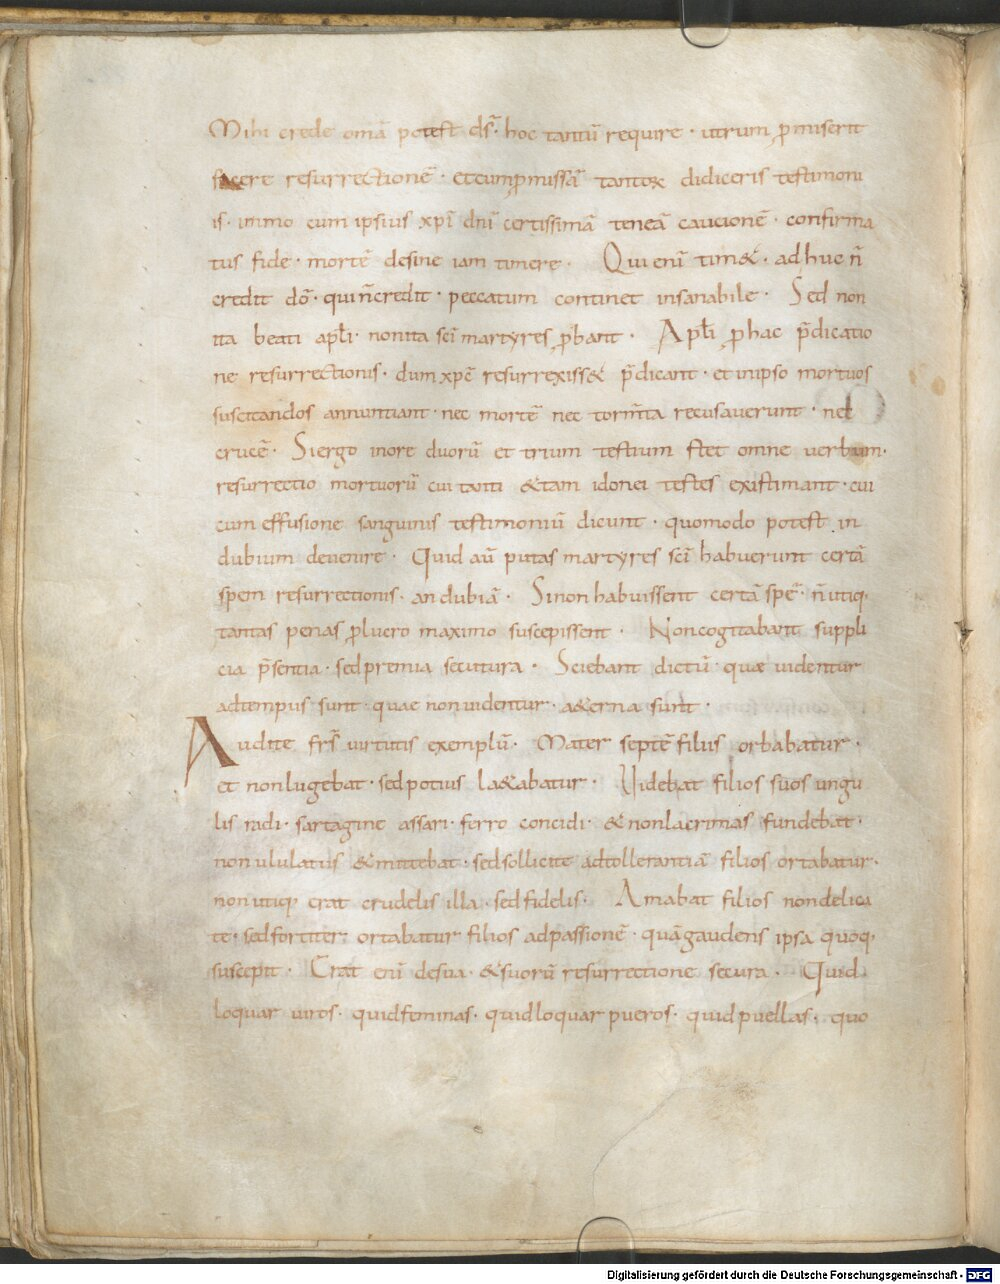 Mihi crede omā potest d̄s · hoc tantū require · utrum ꝓmiserit
facere resurrectionē · et cum ꝓmissā tantoꝝ didiceris testimoni
is · immo cum ipsius xp̄i dn̄i certissimā teneā caucionē · confirma
tus fide · mortē desine iam timere · Qui enī tim& · adhuc n̄
credit dō · qui n̄ credit · peccatum continet insanabile · Sed non
ita beati apłi · non ita sc̄i martyres ꝓbant · Apłi ꝓ hac p̄dicatio
ne resurrectionis · dum xp̄c resurrexiss& p̄dicant · et in ipso mortuos
suscitandos annuntiant · nec mortē nec torm̄ta recusaverunt · nec
crucē · Si ergo in ore duorū et trium testium stet omne verbum ·
resurrectio mortuorū cui tanti &tam idonei testes existimant · cui
cum effusione sanguinis testimoniū dicunt · quomodo potest in
dubium devenire · Quid aū putas martyres sc̄i habuerunt certā
spem resurrectionis · an dubiā · Si non habuissent certā spē · n̄ utiq·
tantas penas ꝓ lucro maximo suscepissent · Non cogitabant suppli
cia p̄sentia · sed premia secutura · Sciebant dictū · quae videntur
ad tempus sunt · quae non videntur · a&erna sunt ·
Audite fr̄s virtutis exemplū · Mater septē filiis orbabatur ·
et non lugebat · sed potius la&abatur · Videbat filios suos ungu
lis radi · sartagine assari · ferro concidi · & non lacrimas fundebat ·
non ululatus &mittebat · sed sollicite ad tollerantiā filios ortabatur ·
non utiq· erat crudelis illa · sed fidelis · Amabat filios non delica
te · sed fortiter ortabatur filios ad passionē · quā gaudens ipsa quoq·
suscepit · Erat enī de sua · & suorū resurrectione secura · Quid
loquar viros · quid feminas · quid loquar pueros · quid puellas · quo
Digitalisierung gefördert durch die Deutsche Forschungsgemeinschaft - DFG